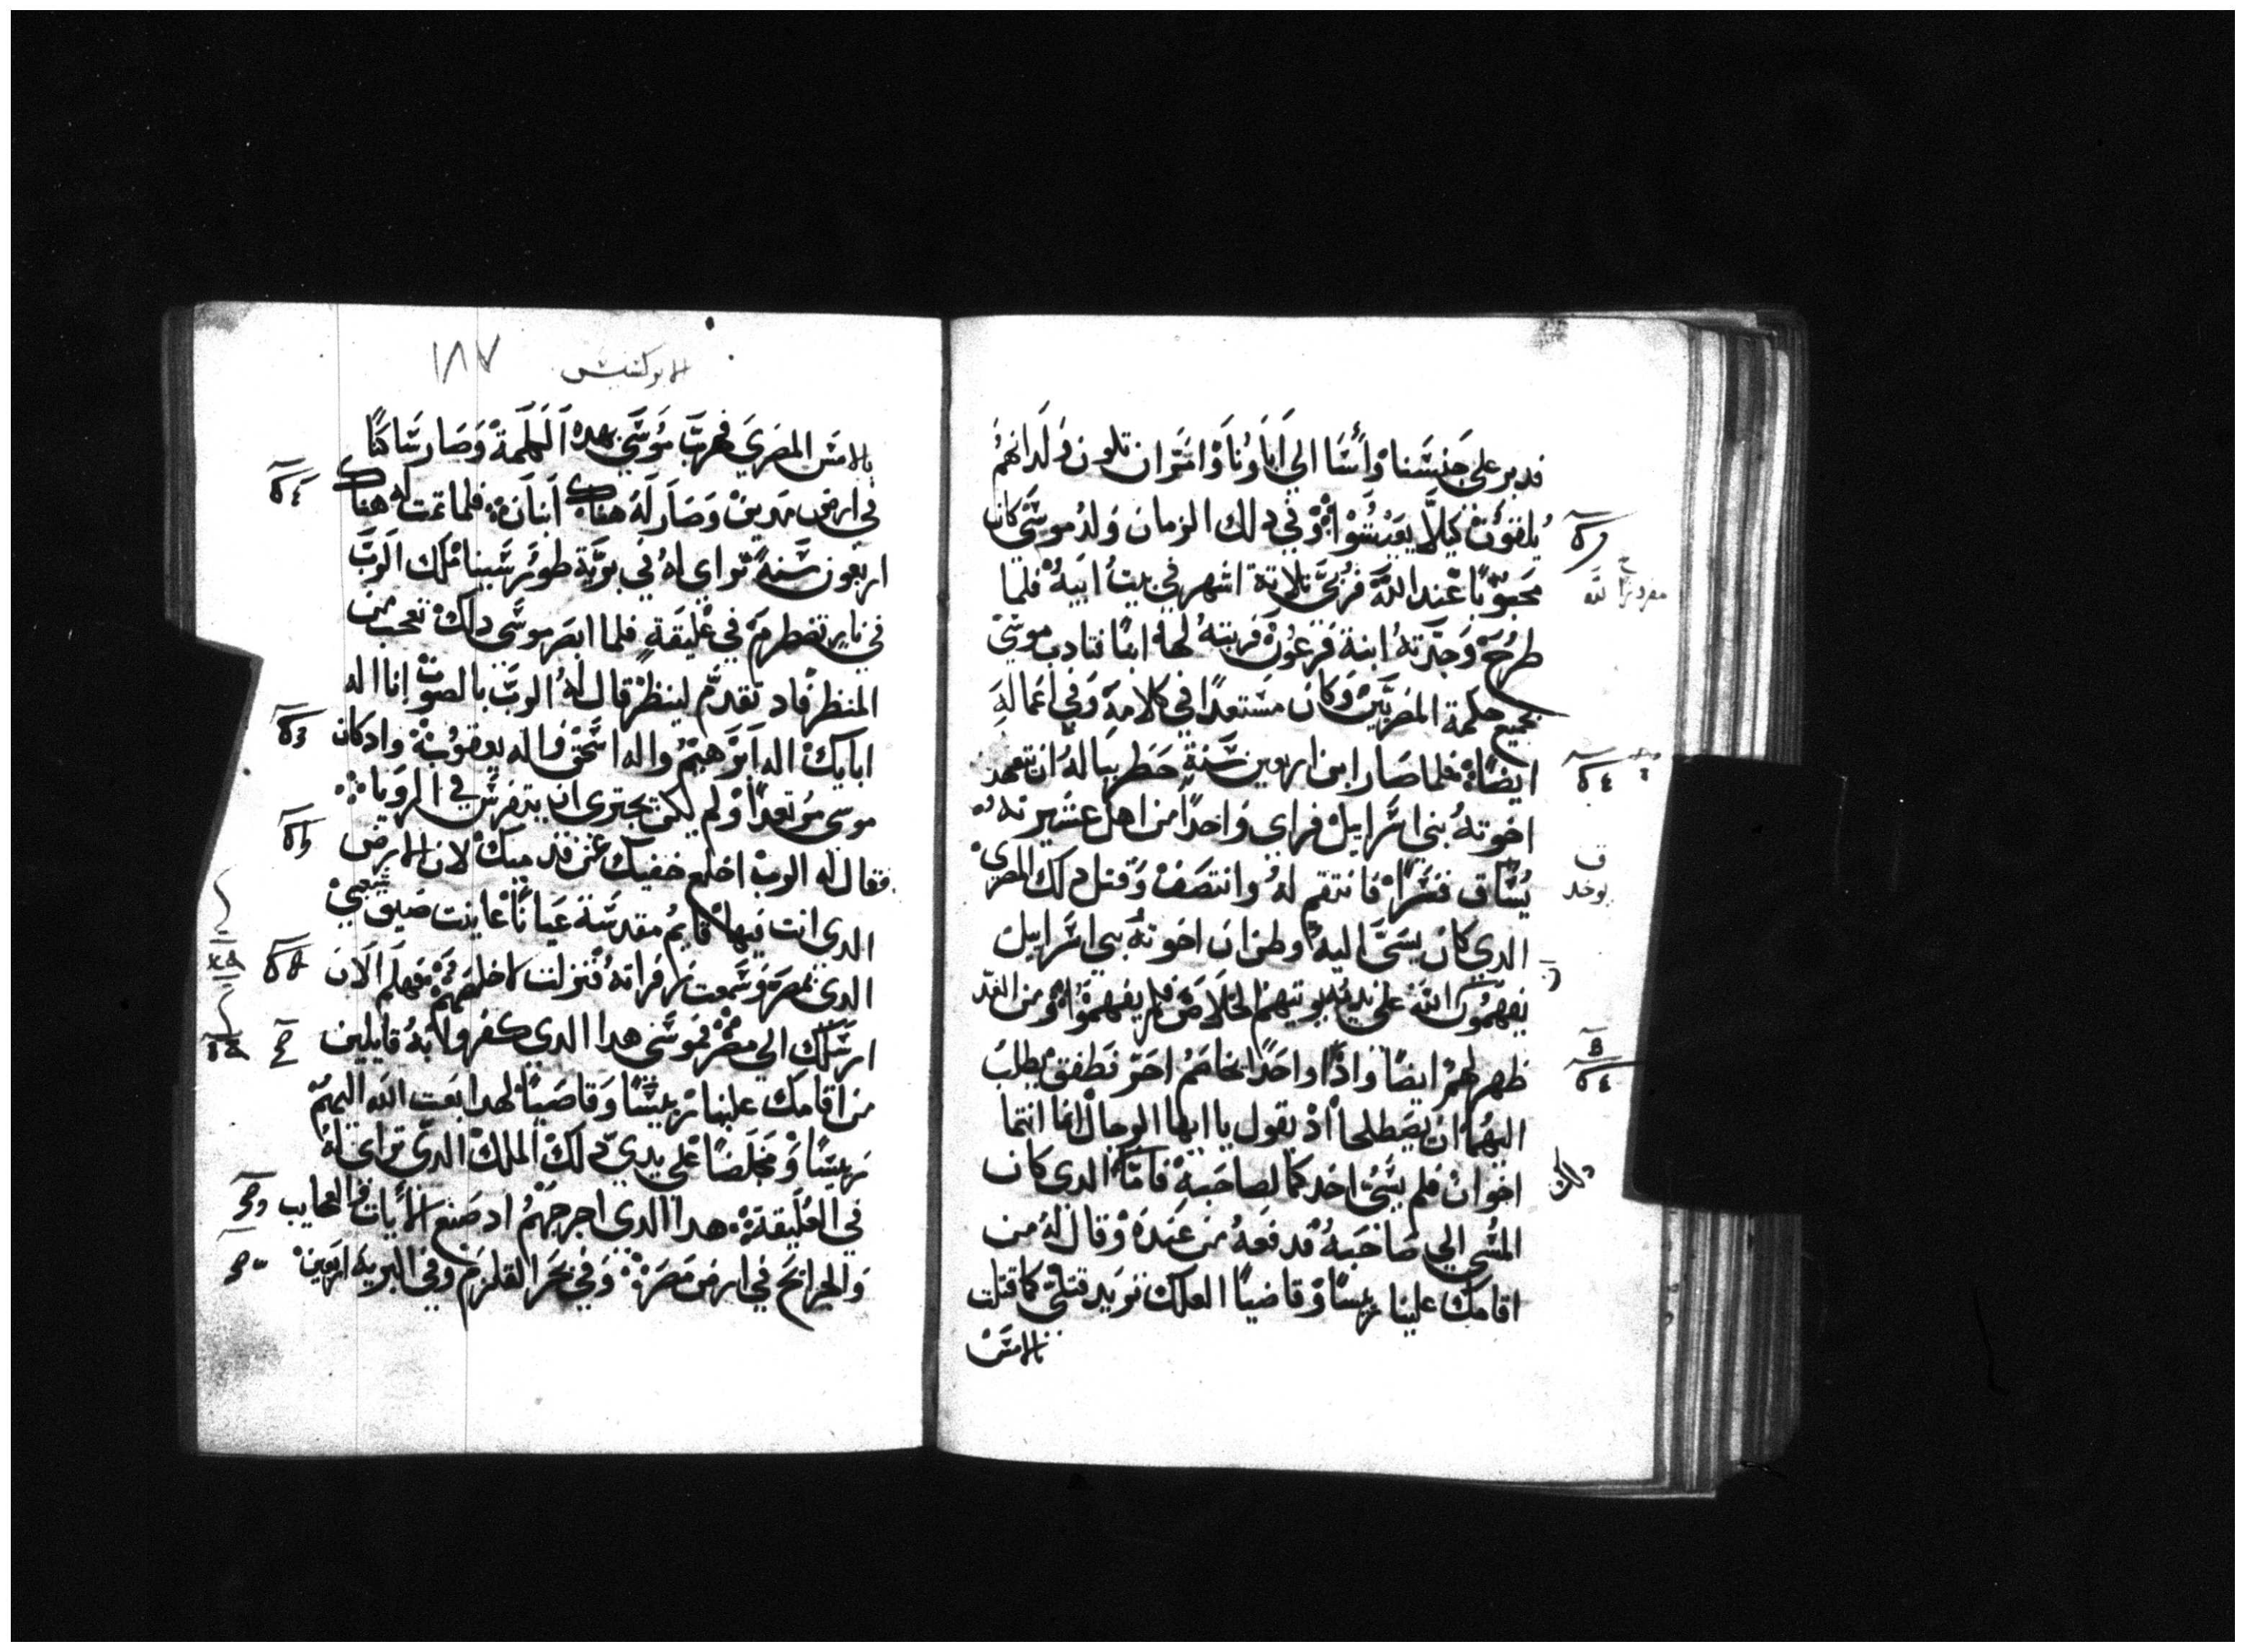 فدبر على جنسنا واسا الي اباونا وامر ان تكون ولدانهم
يلقون كيلا يعيشوا وفي دلك الزمان ولد موسى كان
محبوبا عند الله فربي تلاتة اشهر في بيت ابيه فلما
طرح وجدته ابنة فرعون فربته لها ابنا فتادب موسى
بجميع حكمة المصريين وكان مستعدا في كلامه وفي اعماله
ايضا فلما صار ابن اربعين سنة خطر بباله ان يتعهد
اخوته بني اسرايل فراي واحدا من اهل عشيرته
يساق قسرا فانتقم له وانتصف وقتل دلك المصري
الدي كان يسي اليه وظن ان اخوته بني اسرايل
يفهمون الله على يديه يوتيهم الخلاص فلم يفهموا ومن الغد
ظهر لهم ايضا واذا واحدا يخاصم اخر فطفق يطلب
اليهما ان يصطلحا اذ يقول يا ايها الرجال انما انتما
اخوان فلم يسي احدكما لصاحبه فاما الدي كان
المسي الي صاحبه فدفعه من عنده وقال له من
اقامك علينا رييسا وقاضيا العلك تريد قتلي كما قتلت
بالامس
الابركسيس
١٨٧
بالامس المصري فهرب موسي بهده الكلمة وصار ساكنا
في ارض مدين وصار له هناك ابنان فلما تمت له هناك
اربعون سنة تراى له في برية طور سينا ملاك الرب
في نار تضطرم في عليقة فلما ابصر موسى دلك تعجب من
المنظر فاد تقدم لينظر قال له الرب بالصوت انا اله
ابايك اله ابرهيم واله اسحق واله يعقوب واد كان
موسى مرتعدا ولم يكن يجتري ان يتفرس في الرويا
فقال له الرب اخلع خفيك عن قدميك لان الارض
الدي انت فيها قايم مقدسة عيانا عاينت ضيق شعبي
الدي بمصر وسمعت زفراته فنزلت لاخلصهم فهلم الان
ارسلك الى مصر فموسى هدا الدي كفروا به قايلين
من اقامك علينا رييسا وقاضيا لهدا بعت الله اليهم
رييسا ومخلصا على يدي دلك الملك الدي تراى له
في العليقة هدا الدي اخرجهم اد صنع الايات والعجايب
والجرايح في ارض مصر وفي بحر القلزم وفي البرية اربعين